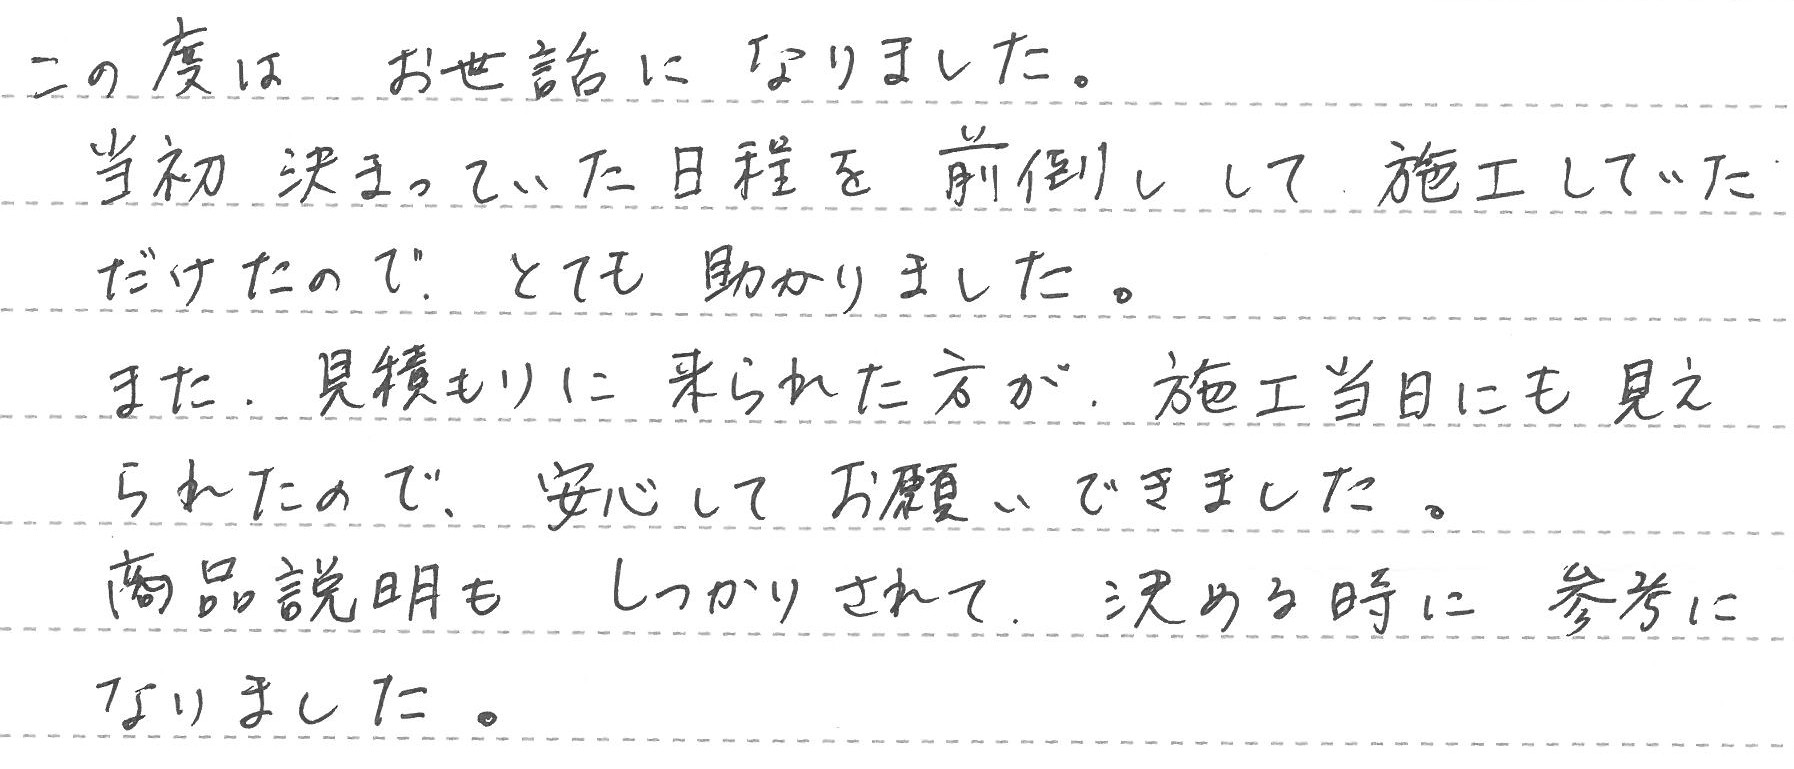 この度は お世話になりました。
当初決まっていた日程を前倒しして、施工していた
だけたので、とても助かりました。
また、見積もりに来られた方が、施工当日にも見え
られたので、安心してお願いできました。
商品説明も しっかりされて、決める時に 参考に
なりました。